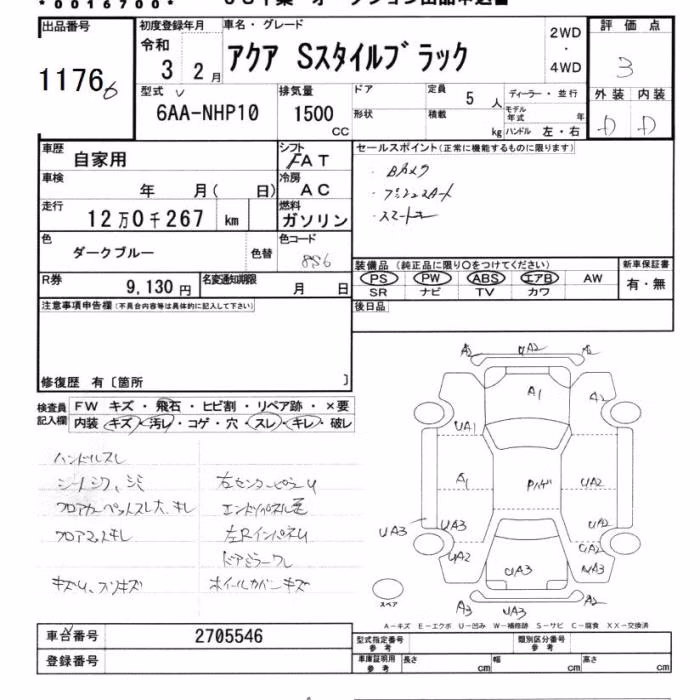 *0016700*
出品番号
11766
初度登録年月
令和
3 2月
車名・グレード
アクア Sスタイルブラック
2WD
・
4WD
評価点
3
外装 内装
D D
型式
6AA-NHP10
排気量
1500
CC
ドア
形状
定員
5 人
積載
kg
ディーラー・並行
モデル年式
年
ハンドル 左・右
車歴
自家用
シフト
FAT
車検
年 月( 日)
冷房
AC
走行
12万0千267 km
燃料
ガソリン
色
ダークブルー
色替
色コード
8S6
R券
9,130円
名変通知期限
月 日
セールスポイント(正常に機能するものに限ります)
・Bカメラ
・プッシュスタート
・スマートキー
装備品(純正品に限り〇をつけてください)
PS PW ABS エアB AW
SR ナビ TV カワ
新車保証書
有・無
後日品
注意事項申告欄(不具合内容等は具体的に記入して下さい)
修復歴 有〔箇所 〕
検査員
記入欄
FW キズ・飛石・ヒビ割・リペア跡・×要
内装 キズ・汚レ・コゲ・穴・スレ・キレ・破レ
ハンドルスレ
シートシワ、シミ
フロアカーペットスレ大、キレ
フロアマットキレ
キズU、スリキズ
左センターピラーU
左RインパネU
ドアミラーワレ
ホイールカバーキズ
A2 UA2 A2
A1
A2
UA1
A1
Pハゲ
UA2
UA3
UA3
UA2
UA2
UA2
UA3
UA3
A3
UA3
A2
スペア
A-キズ E-エクボ U-凹み W-補修跡 S-サビ C-腐食 XX-交換済
車台番号
2705546
登録番号
型式指定番号
参考
類別区分番号
参考
車庫証明用
参考
長さ
cm
幅
cm
高さ
cm